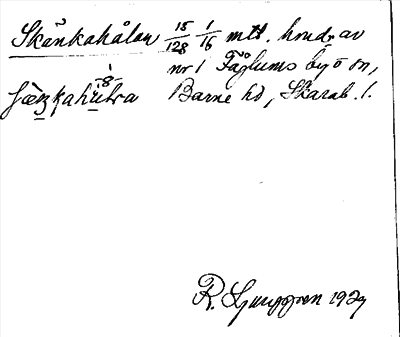 Skånkahålan 15/128 1/16 mtl. hmd. av
nr 1 Fåglums by o sn,
Barne hd, Skarab. l.
R. Ljunggren 1929